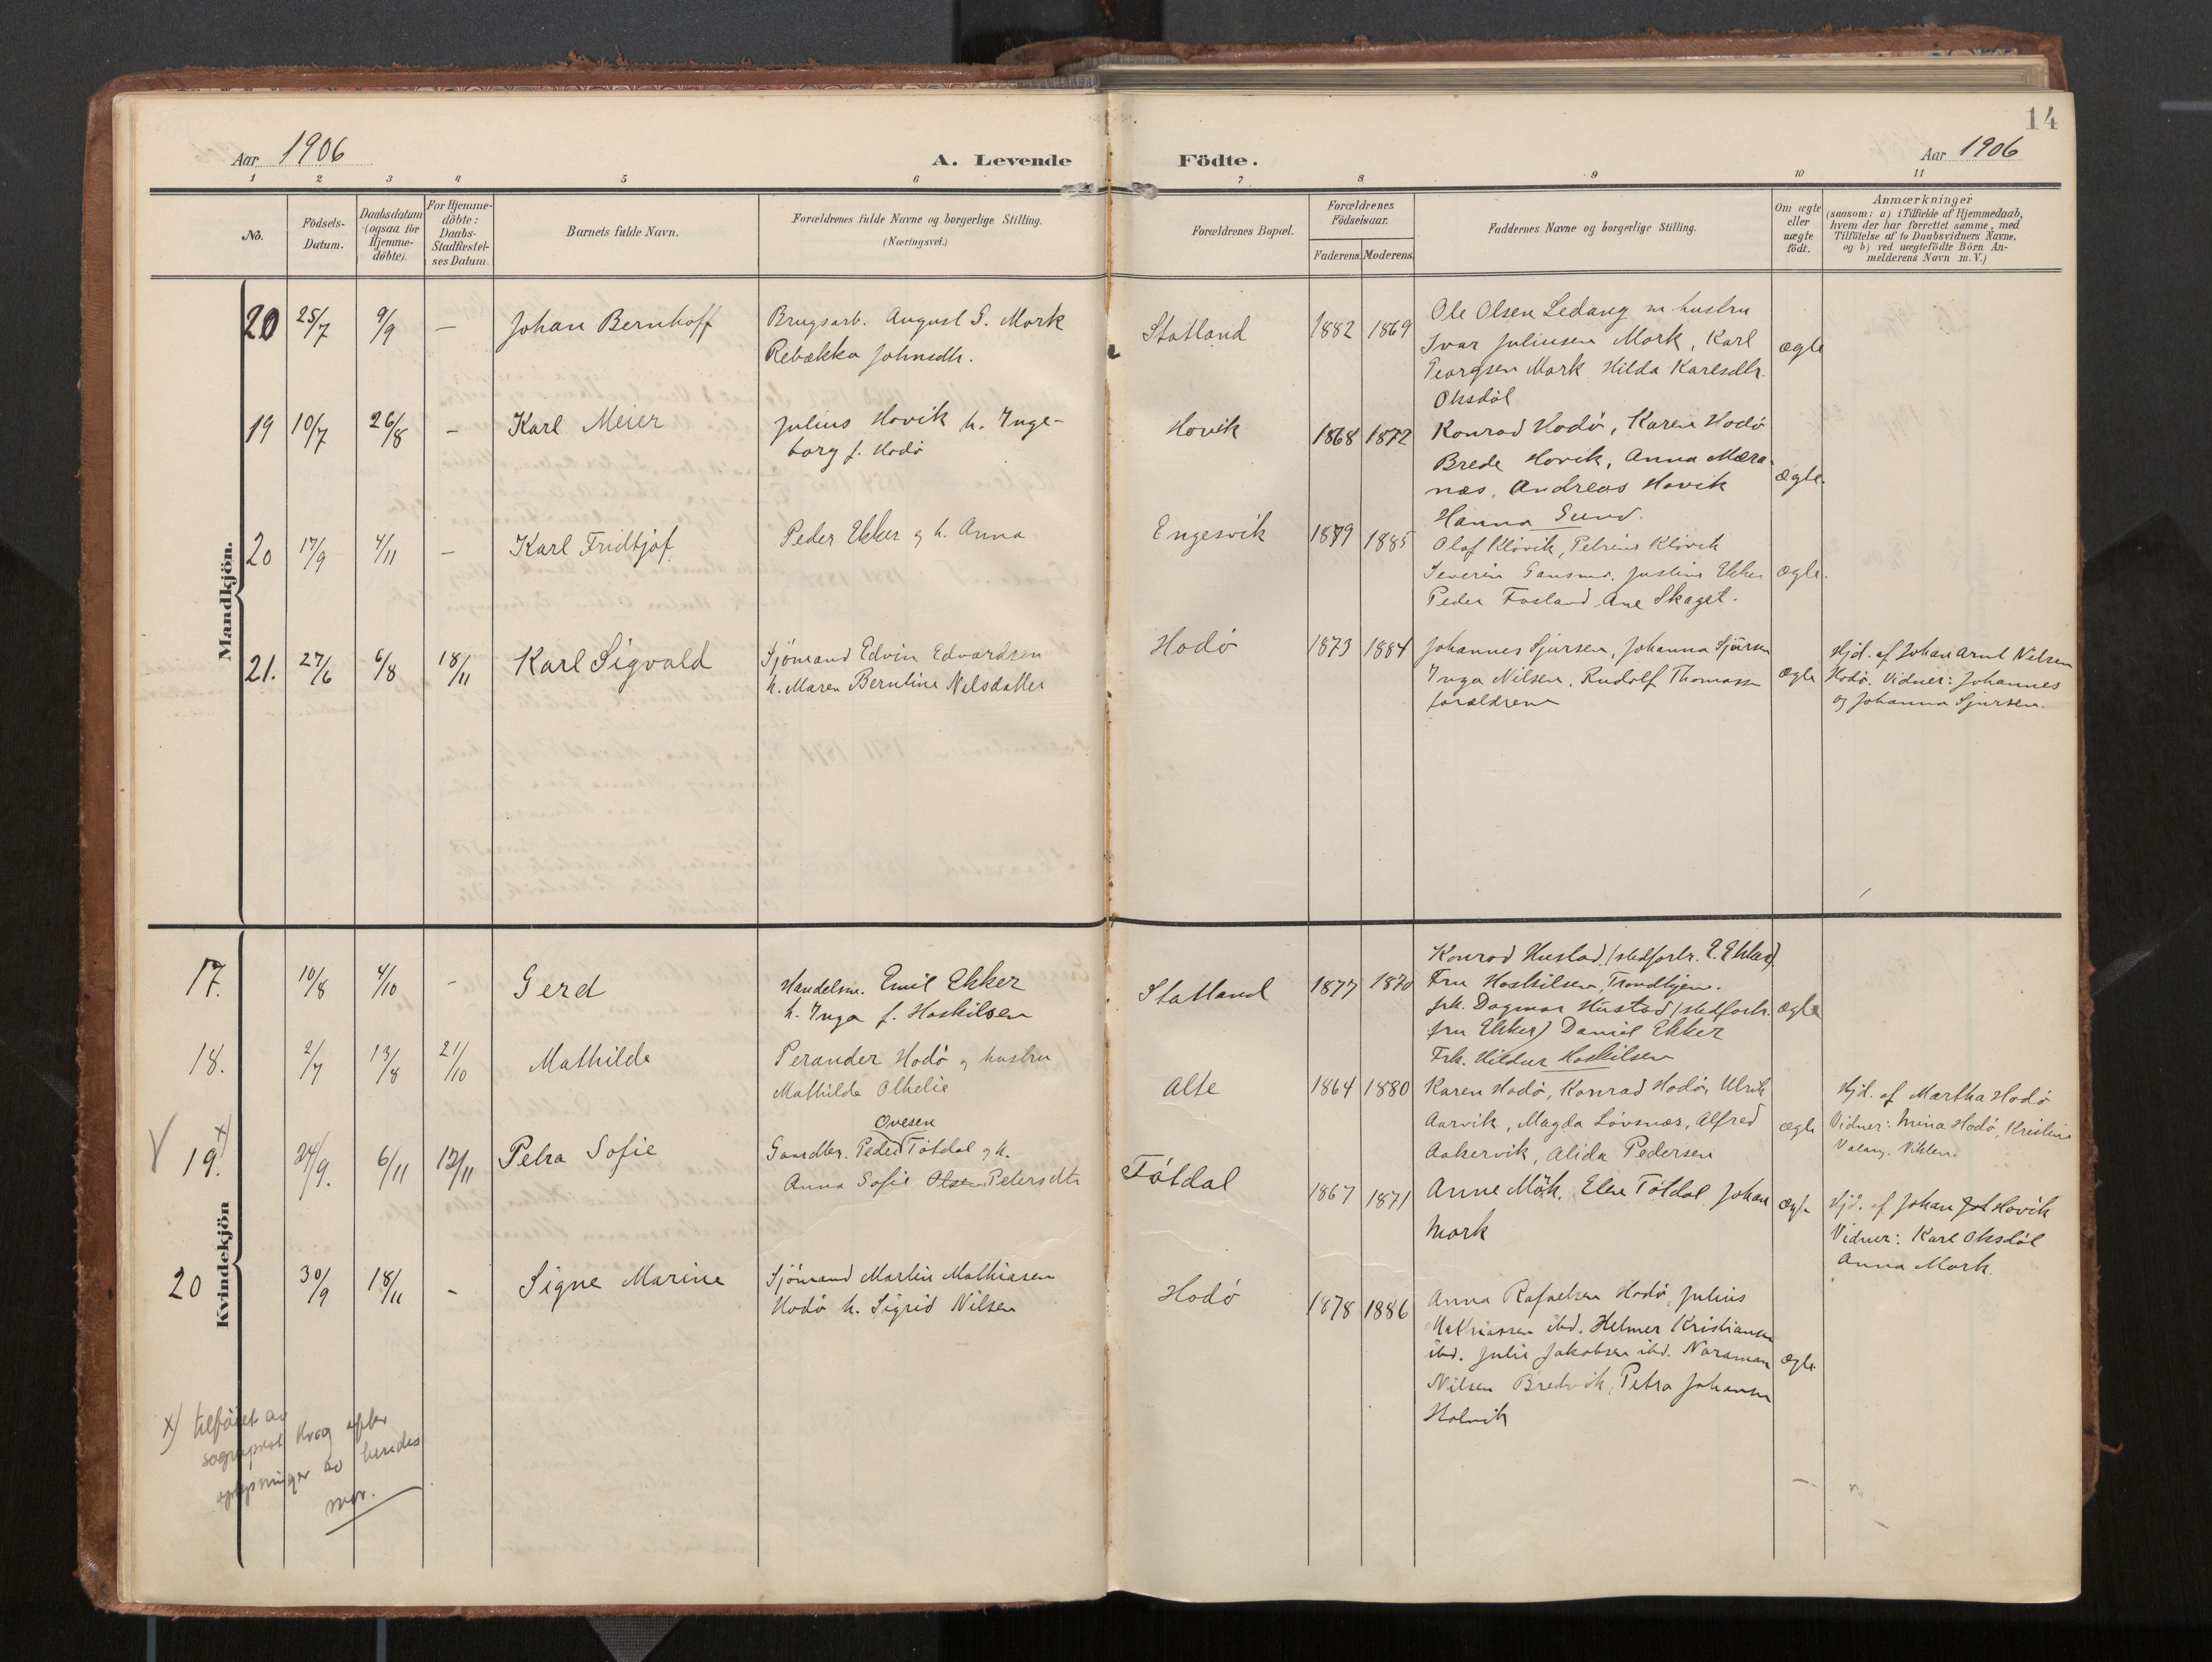 14
Aar 1906
A. Levende
Födte.
Aar 1906
1 2 3 4 5 6 7 8 9 10 11
No.
Födsels-
Datum.
Daabsdatum
(ogsaa for
Hjemme-
döbte).
For Hjemme-
döbte:
Daabs-
Stadfæstel-
ses Datum.
Barnets fulde Navn.
Forældrenes fulde Navne og borgerlige Stilling.
(Næringsvei.)
Forældrenes Bopæl.
Forældrenes
Födselsaar.
Faderens. Moderens.
Faddernes Navne og borgerlige Stilling.
Om ægte
eller
uægte
födt.
Anmærkninger
(saasom: a) i Tilfælde af Hjemmedaab,
hvem der har forrettet samme, med
Tilföielse af to Daabsvidners Navne,
og b) ved uægtefödte Börn An-
melderens Navn m. V.)
Mandkjön.
20 25/7 9/9 — Johan Bernhoff
Brugsarb. August S. Mork
Rebækka Johnsdtr.
Statland 1882 1869
Ole Olsen Ledang m hustru
Ivar Juliusen Mork, Karl
Georgsen Mork Hilda Karlsdtr.
Oksdöl
ægte
19 10/7 26/8 - Karl Meier
Julius Hovik h. Inge-
borg f. Hodö
Hovik 1868 1872
Konrad Hodö, Karen Hodö
Brede Hovik, Anna Mæra-
næs, Andreas Hovik
Hanna Sund.
ægte.
20 17/9 4/11 - Karl Fridtjof
Peder Ekker og h. Anna
Engesvik 1879 1885
Olaf Klövik, Petrine Klövik
Severin Gansmo. Justine Ekker
Peder Fosland, Ane Skaget.
ægte.
21. 27/6 6/8 18/11 Karl Sigvald
Sjömand Edvin Edvardsen
h. Maren Berntine Nilsdatter
Hodö 1873 1884
Johannes Sjursen, Johanna Sjursen
Inga Nilsen, Rudolf Thomassen
forældrene
ægte
Hjd. af Johan Arnt Nilsen
Hodö. Vidner: Johannes
og Johanna Sjursen.
Kvindekjön
17. 10/8 4/10 - Gerd
Handelsm. Emil Ekker
h. Inga f. Hoskilsen
Statland 1877 1870
Konrad Hustad (stedfortr. E. Ekker).
Fru Hoskilsen, Trondhjem.
frk. Dagmar Hustad (stedfortr.
fru Ekker) Daniel Ekker
Frk. Hildur Hoskilsen
ægte
18. 2/7 13/8 21/10 Mathilde
Perander Hodö og hustru
Mathilde Othelie
Alte 1864 1880
Karen Hodö, Konrad Hodö, Ulrik
Aarvik, Magda Lövsnæs, Alfred
Aakervik, Alida Pedersen
ægte
Hjd. af Martha Hodö
Vidner: Mina Hodö, Kristine
19. x) 24/9. 6/11 12/11 Petra Sofie
Ovesen
Gaardbr. Peder Tötdal og h.
Anna Sofie Olsen Petersdtr
Tötdal 1867 1871
Anne Mörk, Elen Tötdal Johan
Mork
ægte
Hjd. af Johan Hovik
Vidner: Karl Oksdöl
Anna Mork.
20 30/9 18/11 - Signe Marine
Sjömand Martin Mathiasen
Hodö h. Sigrid Nilsen
Hodö 1878 1886
Anna Rafaelsen Hodö, Julius
Mathiassen ibd. Helmer Kristiansen
ibd. Julie Jakobsen ibd. Naraman
Nilsen Bredvik, Petra Johansen
Holvik
ægte
x) tilföiet av
sogneprest Krog efter
oplysninger av hendes
mor.